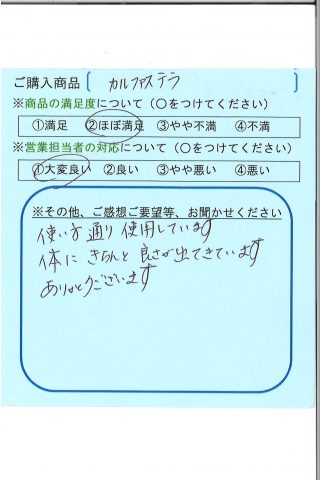 ご購入商品〔 カルファステラ 〕
※商品の満足度について（○をつけてください）
①満足 ②ほぼ満足 ③やや不満 ④不満
※営業担当者の対応について（○をつけてください）
①大変良い ②良い ③やや悪い ④悪い
※その他、ご感想ご要望等、お聞かせください
使い方通り使用しています
体にきちんと良さが出てきています
ありがとうございます